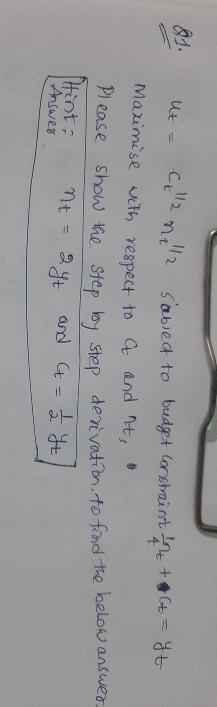 Q1. ut = ct^1/2 nt^1/2 subject to budget constraint 1/4 nt + ct = yt
Maximise with respect to ct and nt,
Please show the step by step derivation, to find the below answer.
Hint: nt = 2yt and ct = 1/2 yt
Answer